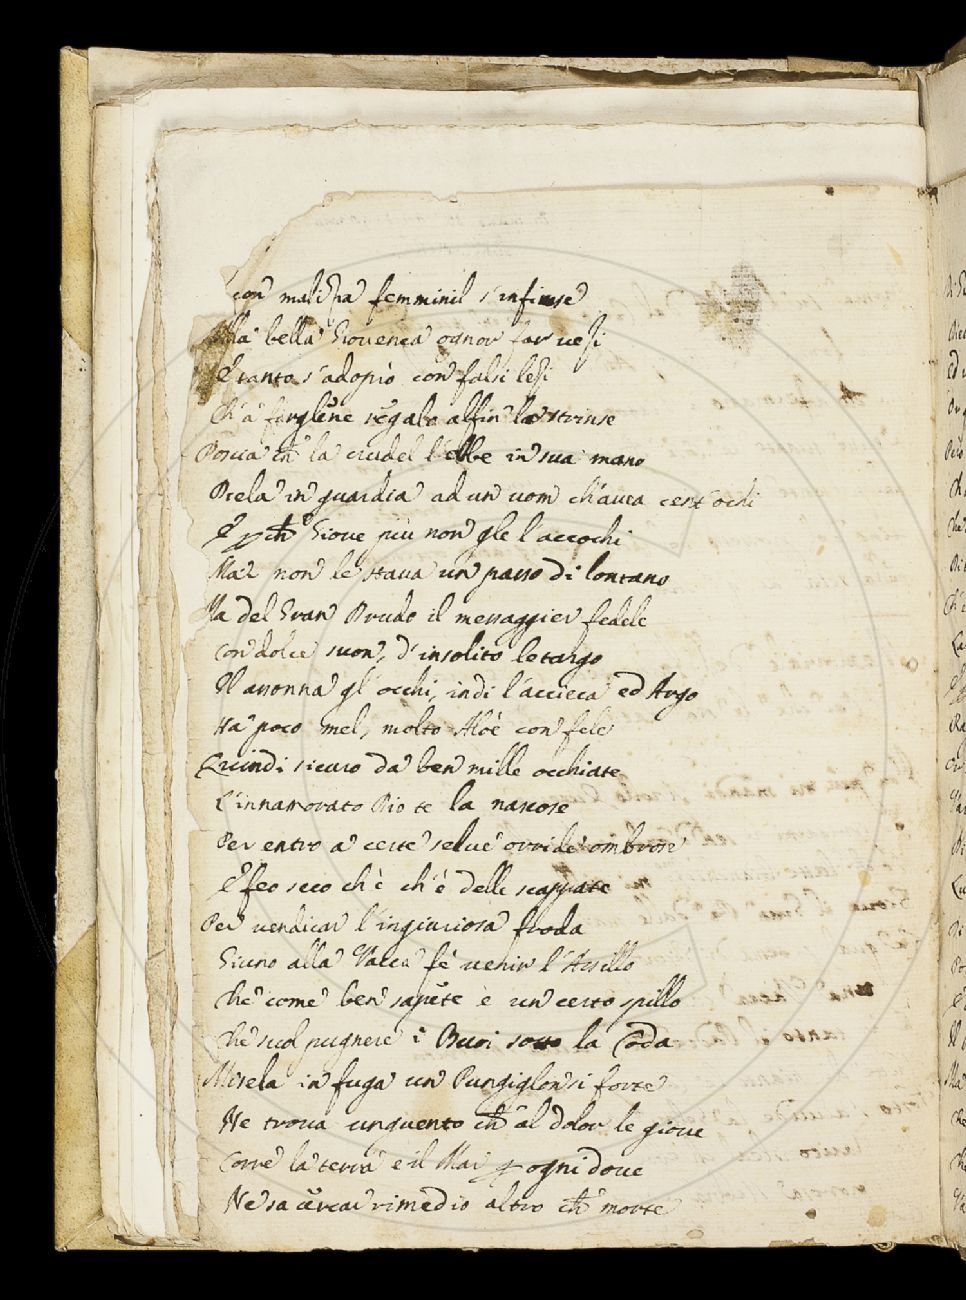 Con malizia femminil s'infinse
Alla bella Giovenca ognor far vezi
E tanto s'adoprò con falsi lezi
Ch'a fargliene regalo alfin la strinse
Poscia ch̃ la crudel l'ebbe in sua mano
Diela in guardia ad un uom ch'avea cent'ochi
E p ch̃ Giove più non gle l'accochi
Mai non le stava un passo di lontano
Ma del Gran Drudo il messaggier fedele
Con dolce suon, d'insolito letargo
Gl'assonna gl'occhi, indi l'acciecà ed Argo
Ha poco mel, molto Aloè con fele
Quindi sicuro da ben mille occhiate
L'innamorato Dio se la nascose
Per entro a certe selve orride ombrose
E feo seco ch'è ch'è delle scappate
Per vendicar l'ingiuriosa froda
Giuno alla Vacca fè venir l'Assillo
Che come ben sapete è un certo spillo
Che suol pugnere i Buoi sotto la Coda
Misela in fuga un Pungiglion si forte
Ne trova unguento ch̃ al dolor le giove
Corre la terra e il Mar p ogni dove
Ne sa cercar rimedio altro ch̃ morte